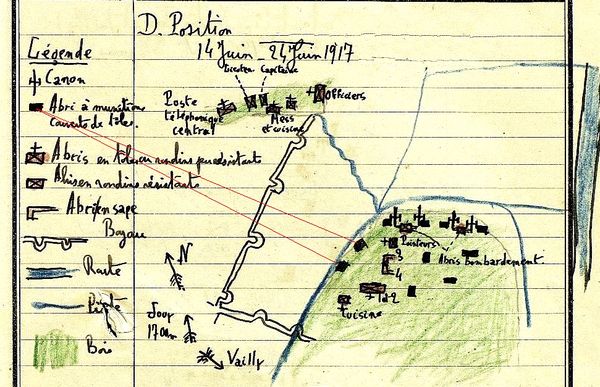 D. Position
14 Juin _ 24 Juin 1917
Légende
Canon
Abri à munitions
couverts de tôles.
Abris en tôle ou rondins peu résistants
Abris en rondins résistants
Abri en sape
Boyau
Route
Piste
Bois
Lieuten. Capitaine
Officiers
Poste
téléphonique
central
Mess
et cuisine
Pointeurs
Abris bombardement
3
4
1 2
Cuisine
N
1700m
Vailly